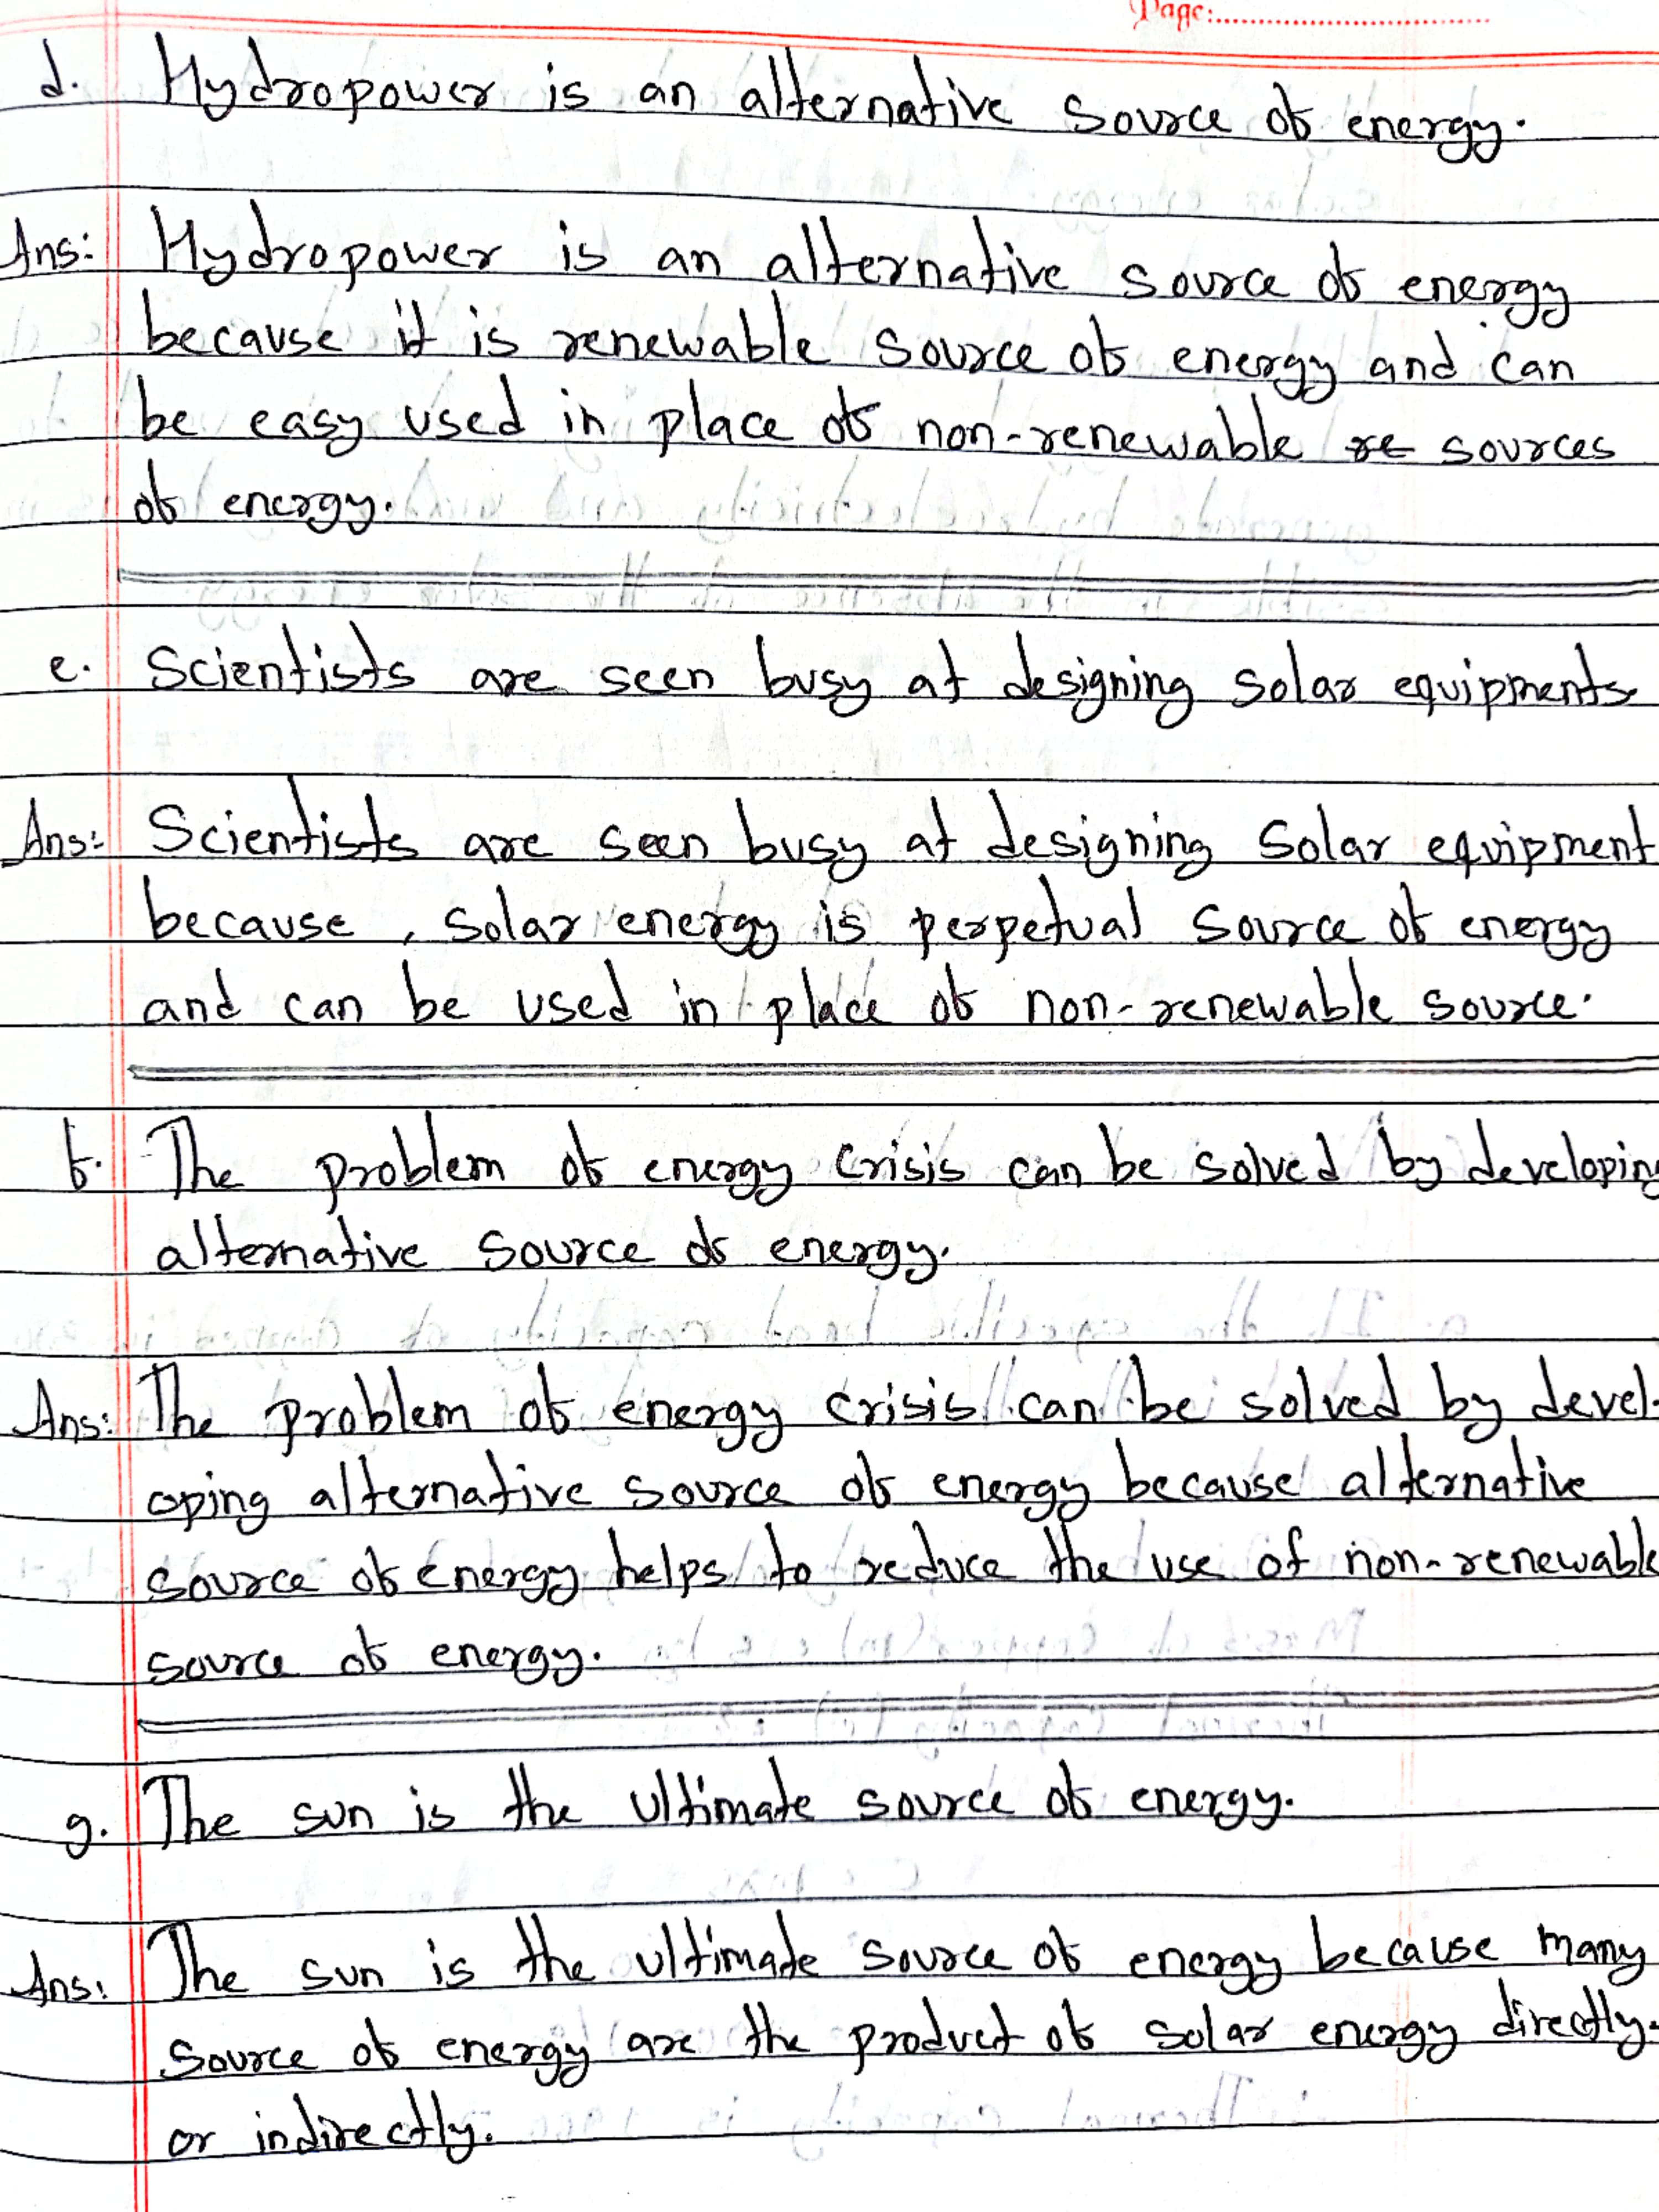 Page:
d. Hydropower is an alternative source of energy.
Ans: Hydropower is an alternative source of energy
because it is renewable source of energy and can
be easy used in place of non-renewable re sources
of energy.
e. Scientists are seen busy at designing solar equipments
Ans: Scientists are seen busy at designing solar equipment
because, solar energy is perpetual source of energy
and can be used in place of non-renewable source.
f. The problem of energy crisis can be solved by developing
alternative source of energy.
Ans: The problem of energy crisis can be solved by devel-
oping alternative source of energy because alternative
source of energy helps to reduce the use of non-renewable
source of energy.
g. The sun is the ultimate source of energy.
Ans: The sun is the ultimate source of energy because many
source of energy are the product of solar energy directly
or indirectly.